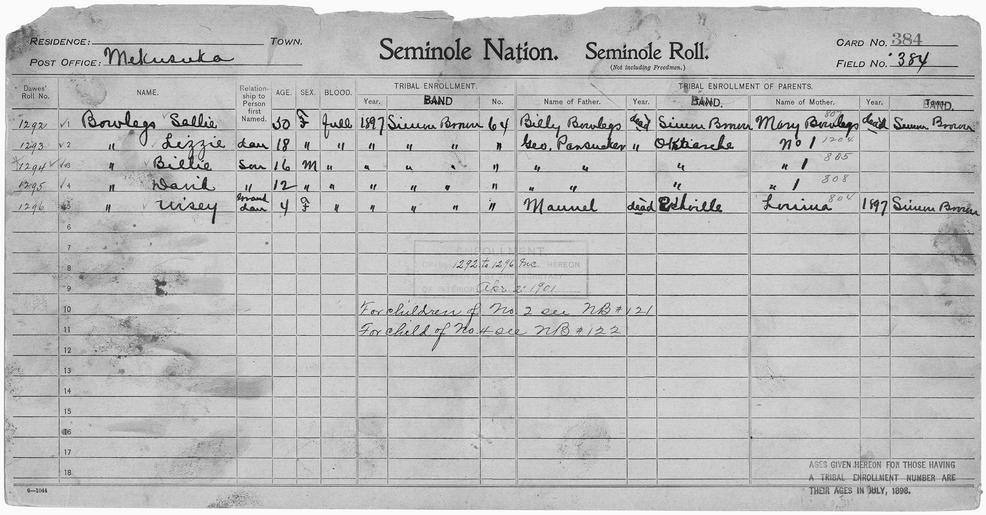 RESIDENCE: TOWN. Seminole Nation. Seminole Roll. CARD NO. 384
POST OFFICE: Mekusuka (Not including Freedmen.) FIELD NO. 384
Dawes' Roll No. NAME. Relationship to Person first Named. AGE. SEX. BLOOD. TRIBAL ENROLLMENT. TRIBAL ENROLLMENT OF PARENTS.
Year. BAND No. Name of Father. Year. BAND. Name of Mother. Year. BAND.
1292 1 Bowlegs Sallie 50 F full 1897 Simm Brown 64 Billy Bowlegs dead Simm Brown Mary Bowlegs dead Simm Brown
1293 2 " Lizzie Dau 18 " " " " " " Geo. Parsucker " No 1 1204
1294 3 " Billie Son 16 M " " " " " " " " " 1 805
1295 4 " David " 12 " " " " " " " " " " 1 808
1296 5 " Wisey Grand Dau 4 F " " " " " Maunel dead Louina 804 1897 Simm Brown
6
7 ENROLLMENT
8 1292 to 1296 Inc. HEREON
9 OF INTERIOR Apr 2 1901
10 For children of No. 2 see NB #121
11 For child of No. 4 see NB #122
12
13
14
15
16
17
18
AGES GIVEN HEREON FOR THOSE HAVING
A TRIBAL ENROLLMENT NUMBER ARE
THEIR AGES IN JULY, 1898.
6—1044